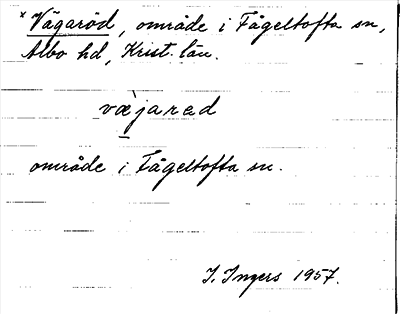 * Vägaröd, område i Fågeltofta sn,
Albo hd, Krist. län.
væ̀jarød
område i Fågeltofta sn.
I. Ingers 1957.